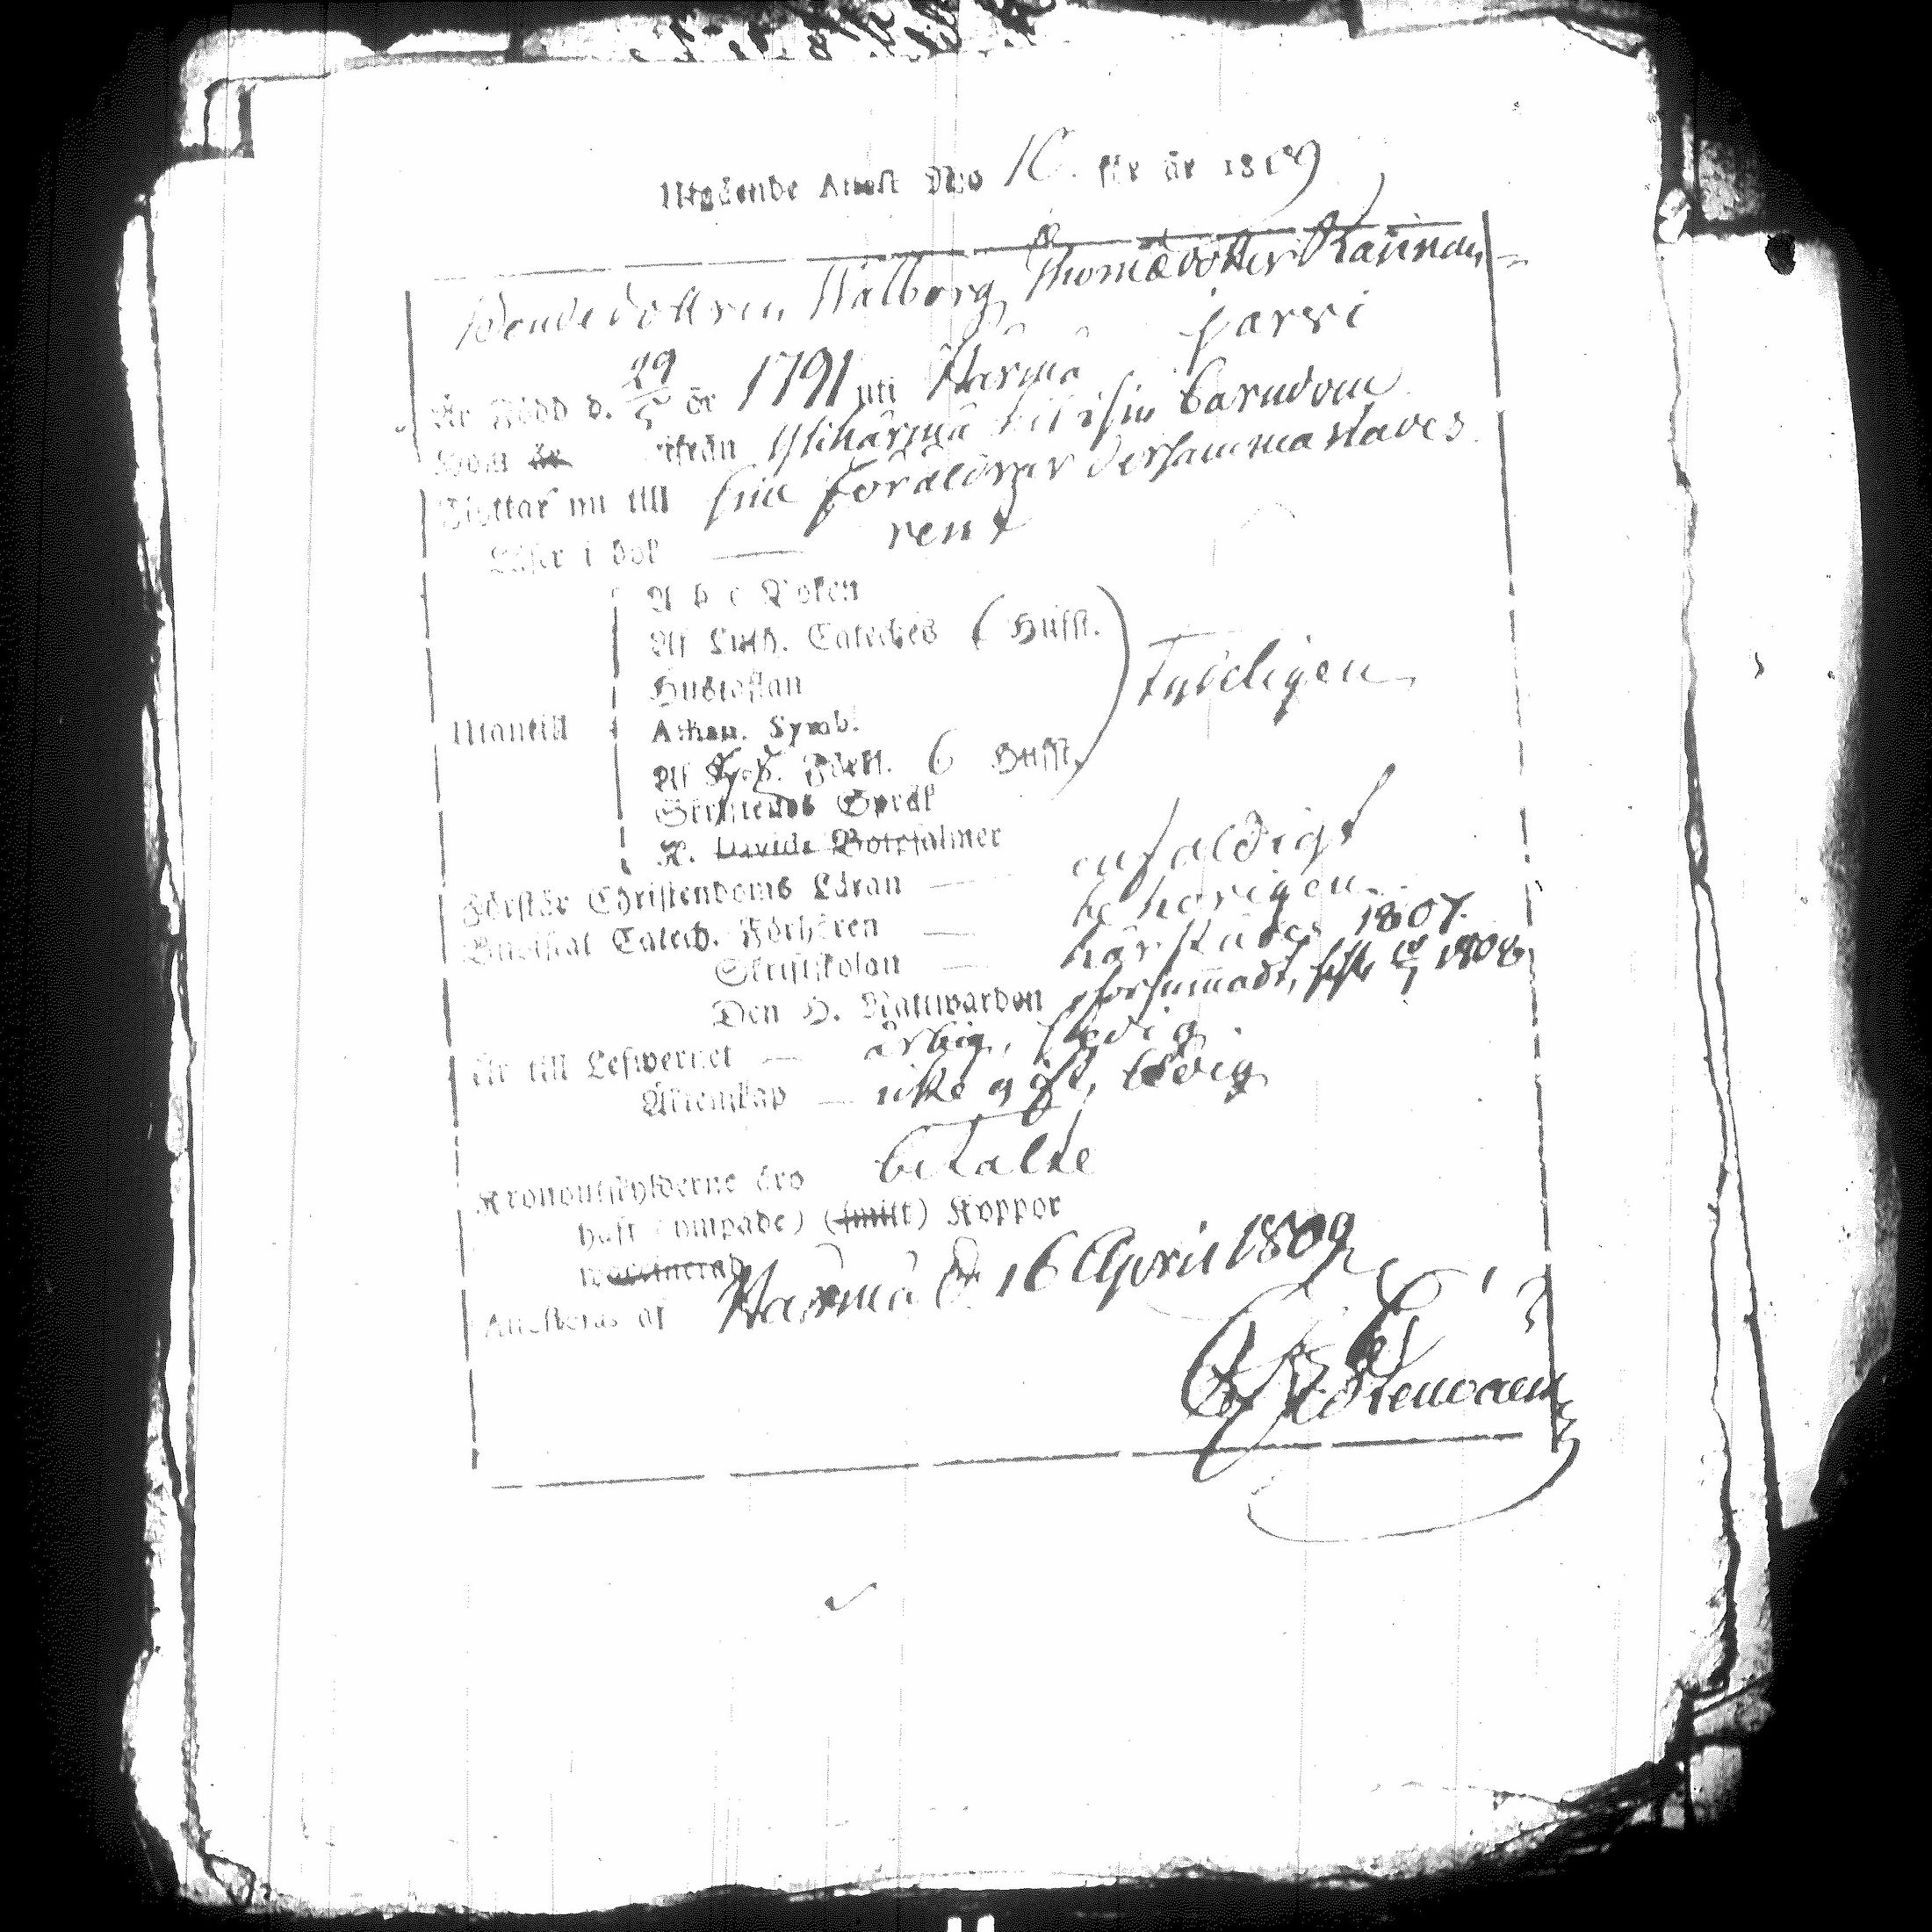 Utgående Attest No 10. för år 1809
Bondedottren Walborg Thomædotter Kaunis-
jarvi
Är Född d. 29/5 år 1791 uti Härmä
Kom år ifrån Ylihärmä hit i sin barndom
Flyttar nu till sine Föräldrar dersammastädes
Läser i bok — rent
A b c Boken
Af Luth. Cateches ( Hufst.
Hustaflan
Utantill Athan. Symb. Tydeligen
Af Förkl. 6 Hufst.
Skriftenes Språk
K. Davids Botpsalmer
Förstår Christendoms Läran — enfaldigt
Bivistat Catech. Förhören — behörigen
Skriftskolan — härstädes 1807.
Den H. Nattwarden försummadt, sist 1808
Är till Lefwernet — ärlig, stedig.
Äktenskap — icke gift, ledig
Kronoutskylderne äro betalte
haft (ympade) (smitt) Koppor
waccinerad
Attesteras af Härmä d. 16 April 1809